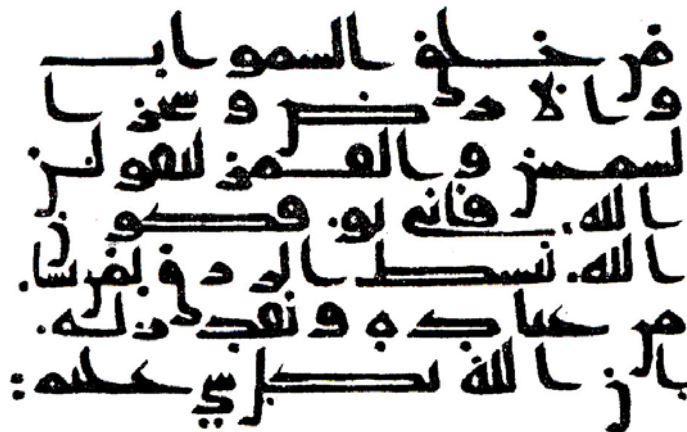 من خلق السموات
والارض وسخر ا
لشمس والقمر ليقولن
الله فانى يوفكون
الله يبسط الرزق لمن يشا
من عباده ويقدر له
ان الله بكل شي عليم